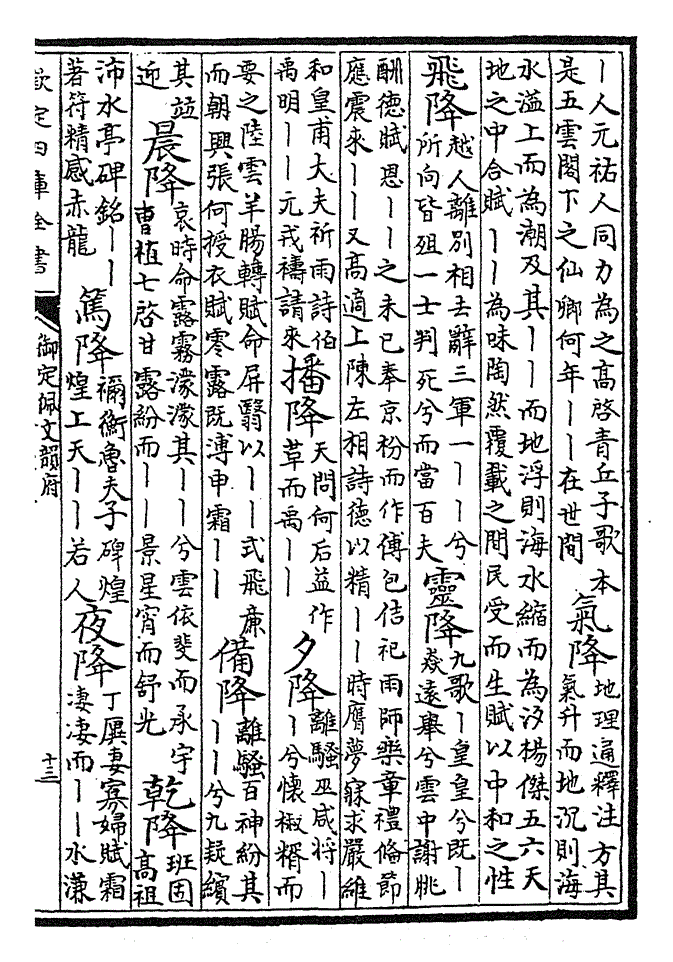 ｜人元祐人同力為之高啓青丘子歌本
是五雲閣下之仙卿何年｜｜在世間
氣降
地理通釋注方其
氣升而地沉則海
水溢上而為潮及其｜｜而地浮則海水縮而為汐楊傑五六天
地之中合賦｜｜為味陶然覆載之間民受而生賦以中和之性
飛降
越人離別相去辭三軍一｜｜｜兮
所向皆殂一士判死兮而當百夫
靈降
九歌｜皇皇兮既｜
猋遠舉兮雲中謝朓
酬德賦恩｜｜之未已奉京枌而作傅包佶祀雨師樂章禮偹節
應震來｜｜又高適上陳左相詩德以精｜｜時膺夢寐求嚴維
和皇甫大夫祈雨詩伯
禹明｜｜元戎禱請來
播降
天問何后益作
草而禹｜｜
夕降
離騷巫咸將｜
｜兮懷椒糈而
要之陸雲羊腸轉賦命屏翳以｜｜式飛廉
而朝興張何授衣賦零露既漙申霜｜｜
備降
離騷百神紛其
｜｜兮九疑繽
其竝
迎
晨降
哀時命露霧濛濛其｜｜兮雲依斐而承宇
曹植七啓甘露紛而｜｜景星宵而舒光
乾降
班固
高祖
沛水亭碑銘｜｜
著符精感赤龍
篤降
禰衡魯夫子碑煌
煌上天｜｜若人
夜降
丁廙妻寡婦賦霜
凄凄而｜｜水濂
欽定四庫全書
御定佩文韻府
十三